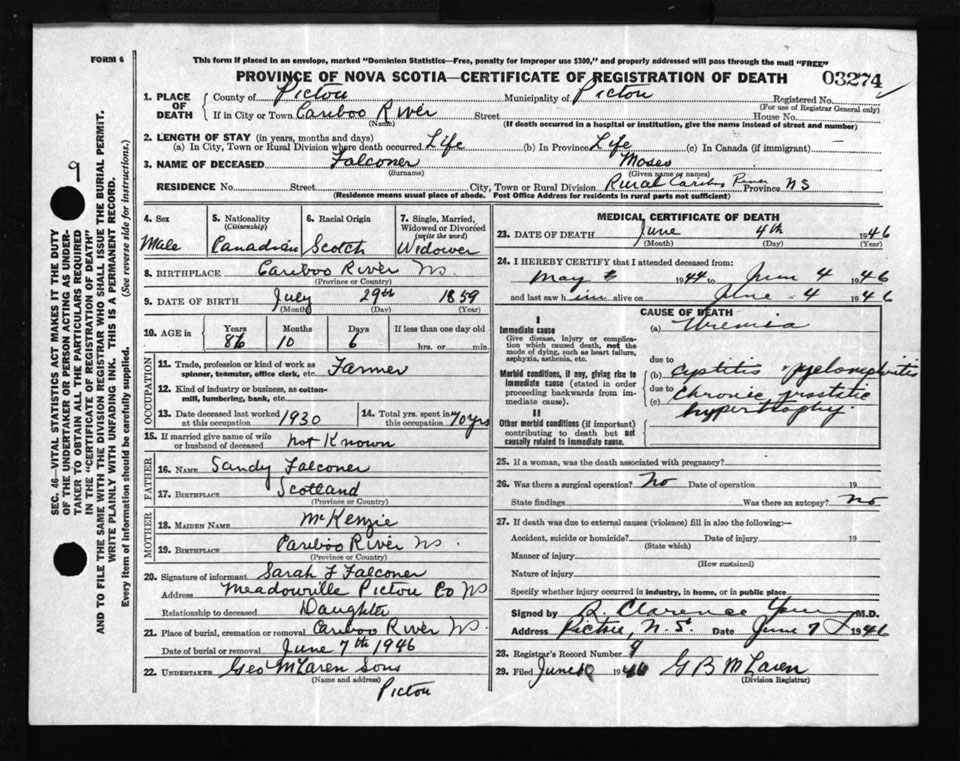 FORM 6
This form if placed in an envelope, marked "Dominion Statistics—Free, penalty for improper use $300," and properly addressed will pass through the mail "FREE"
PROVINCE OF NOVA SCOTIA—CERTIFICATE OF REGISTRATION OF DEATH 03274
1. PLACE OF DEATH County of Pictou Municipality of Pictou Registered No.
(For use of Registrar General only)
If in City or Town Cariboo River Street House No.
(Name) (If death occurred in a hospital or institution, give the name instead of street and number)
2. LENGTH OF STAY (in years, months and days)
(a) In City, Town or Rural Division where death occurred Life (b) In Province Life (c) In Canada (if immigrant) —
3. NAME OF DECEASED Falconer Moses
(Surname) (Given name or names)
RESIDENCE No. Street City, Town or Rural Division Rural Cariboo River Province NS
(Residence means usual place of abode. Post Office Address for residents in rural parts not sufficient)
4. Sex Male
5. Nationality (Citizenship) Canadian
6. Racial Origin Scotch
7. Single, Married, Widowed or Divorced (write the word) Widower
8. BIRTHPLACE Cariboo River NS.
(Province or Country)
9. DATE OF BIRTH July 29th 1859
(Month) (Day) (Year)
10. AGE in Years Months Days If less than one day old
86 10 6 hrs. or min.
OCCUPATION
11. Trade, profession or kind of work as spinner, teamster, office clerk, etc. Farmer
12. Kind of industry or business, as cotton-mill, lumbering, bank, etc.
13. Date deceased last worked at this occupation 1930
14. Total yrs. spent in this occupation 70 yrs
15. If married give name of wife or husband of deceased not Known
FATHER
16. NAME Sandy Falconer
17. BIRTHPLACE Scotland
(Province or Country)
MOTHER
18. MAIDEN NAME McKenzie
19. BIRTHPLACE Cariboo River NS.
(Province or Country)
20. Signature of informant Sarah F Falconer
Address Meadowville Pictou Co NS
Relationship to deceased Daughter
21. Place of burial, cremation or removal Cariboo River NS.
Date of burial or removal June 7th 1946
22. UNDERTAKER Geo McLaren Sons
(Name and address)
Pictou
MEDICAL CERTIFICATE OF DEATH
23. DATE OF DEATH June 4th 1946
(Month) (Day) (Year)
24. I HEREBY CERTIFY that I attended deceased from:
May 1944 to June 4 1946
and last saw him alive on June 4 1946
CAUSE OF DEATH
I
Immediate cause
Give disease, injury or complication which caused death, not the mode of dying, such as heart failure, asphyxia, asthenia, etc.
(a) Uremia
due to
Morbid conditions, if any, giving rise to immediate cause (stated in order proceeding backwards from immediate cause).
(b) cystitis pyelonephritis
due to
(c) chronic prostatic hypertrophy.
II
Other morbid conditions (if important) contributing to death but not causally related to immediate cause.
25. If a woman, was the death associated with pregnancy?
26. Was there a surgical operation? No Date of operation 19
State findings Was there an autopsy? No
27. If death was due to external causes (violence) fill in also the following:—
Accident, suicide or homicide? Date of injury 19
(State which)
Manner of injury
(How sustained)
Nature of injury
Specify whether injury occurred in industry, in home, or in public place
Signed by Clarence M.D.
Address Pictou, N. S. Date June 7 1946
28. Registrar's Record Number 9
29. Filed June 10 1946 G B McLaren
(Division Registrar)
9
SEC. 46—VITAL STATISTICS ACT MAKES IT THE DUTY
OF THE UNDERTAKER OR PERSON ACTING AS UNDER-
TAKER TO OBTAIN ALL THE PARTICULARS REQUIRED
IN THE "CERTIFICATE OF REGISTRATION OF DEATH"
AND TO FILE THE SAME WITH THE DIVISION REGISTRAR WHO SHALL ISSUE THE BURIAL PERMIT.
WRITE PLAINLY WITH UNFADING INK. THIS IS A PERMANENT RECORD.
Every item of information should be carefully supplied. (See reverse side for instructions.)